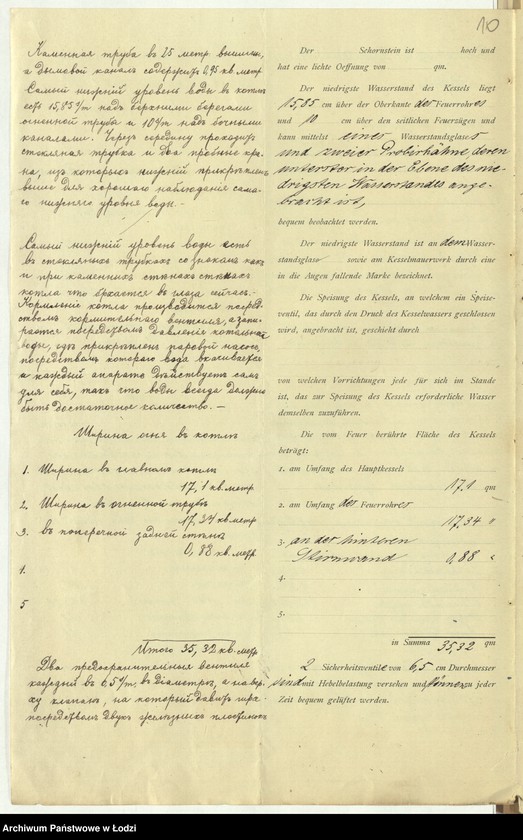 10
Каменная труба въ 25 метр вышин,
а дымовой каналъ содержитъ 0,95 кв. метр
Самый низкій уровень воды въ котлѣ
есть 15,85 с/m надъ верхними берегами
огненной трубы и 10 с/m надъ бочными
каналами. Черезъ середину проходитъ
стекляная трубка и два пробные кра-
на, изъ которыхъ нижній прикрѣпленъ
выше для хорошаго наблюденія само-
го низкаго уровня воды.-
Самый низкій уровень воды есть
въ стекляныхъ трубкахъ со знакомъ какъ
и при каменныхъ стѣнахъ
котла что бросается въ глаза сейчасъ.-
Кормленіе котла производится посред-
ствомъ кормительнаго вентиля, а запи-
рается посредствомъ давленія котельной
воды, гдѣ прикрѣпленъ паровой насосъ,
посредствомъ котораго вода вкачивается
и каждый апаратъ дѣйствуетъ самъ
для себя, такъ что воды всегда должно
быть достаточное количество. —
Ширина огня въ котлѣ
1. Ширина въ главномъ котлѣ
17,1 кв. метр
2. Ширина въ огненной трубѣ
17,34 кв метр
3. въ поперечной задней стѣнѣ
0,88 кв. метр.
4.
5
Итого 35,32 кв. метр
Два предохранительныя вентиля
каждый въ 6,5 с/m, въ діаметрѣ, а на вер-
ху клапанъ, на который давитъ гиря
посредствомъ двухъ желѣзныхъ
Der Schornstein ist hoch und
hat eine lichte Oeffnung von qm.
Der niedrigste Wasserstand des Kessels liegt
15,85 cm über der Oberkante der Feuerrohres
und 10 cm über den seitlichen Feuerzügen und
kann mittelst eines Wasserstandsglases
und zweier Probirhähne deren
unterster in der Ebene des nie-
drigsten Wasserstandes ange-
bracht ist,
bequem beobachtet werden.
Der niedrigste Wasserstand ist an dem Wasser-
standsglase sowie am Kesselmauerwerk durch eine
in die Augen fallende Marke bezeichnet.
Die Speisung des Kessels, an welchem ein Speise-
ventil, das durch den Druck des Kesselwassers geschlossen
wird, angebracht ist, geschieht durch
von welchen Vorrichtungen jede für sich im Stande
ist, das zur Speisung des Kessels erforderliche Wasser
demselben zuzuführen.
Die vom Feuer berührte Fläche des Kessels
beträgt:
1. am Umfang des Hauptkessels
17,1 qm
2. am Umfang der Feuerrohres
17,34 "
3. an der hinteren
Stirnwand 0,88 "
4.
5.
in Summa 35,32 qm
2 Sicherheitsventile von 6,5 cm Durchmesser
sind mit Hebelbelastung versehen und können zu jeder
Zeit bequem gelüftet werden.
Archiwum Państwowe w Łodzi